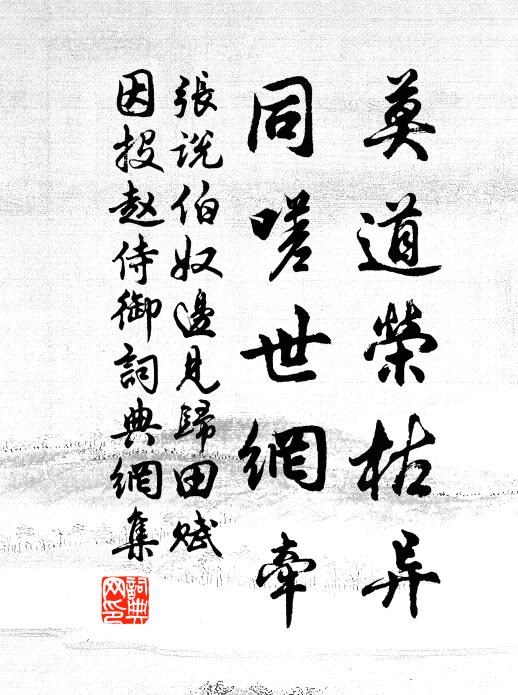 莫道榮枯异
同嗟世網牽
張說伯奴邊見歸田賦
因投赵侍御詞典網集
詞典
网印